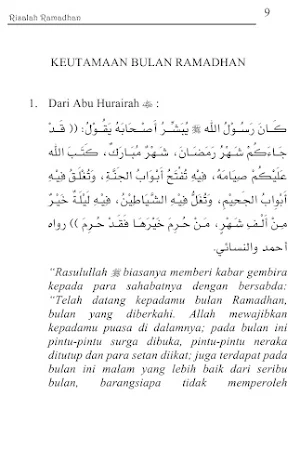 Risalah Ramadhan
9
KEUTAMAAN BULAN RAMADHAN
1. Dari Abu Hurairah ﷺ :
كَـانَ رَسُـوْلُ الله ﷺ يُبَشِّـرُ أَصْـحَابَهُ يَقُـوْلُ: (( قَـدْ
جَاءَكُمْ شَهْرُ رَمَضَـانَ، شَهْرٌ مُبَارَكٌ، كَتَـبَ الله
عَلَيْكُمْ صِيَامَهُ، فِيْهِ تُفْتَحُ أَبْوَابُ الجَنَّةِ، وَتُغْلَقُ فِيْهِ
أَبْوَابُ الجَحِيْمِ، وَتُغَلُّ فِيْهِ الشَّيَاطِيْنُ، فِيْهِ لَيْلَةٌ خَيْرٌ
مِنْ أَلْـفِ شَهْرٍ، مَـنْ حُرِمَ خَيْرَهَـا فَقَـدْ حُرِمَ )) رواه
أحمد والنسائي.
“Rasulullah ﷺ biasanya memberi kabar gembira
kepada para sahabatnya dengan bersabda:
“Telah datang kepadamu bulan Ramadhan,
bulan yang diberkahi. Allah mewajibkan
kepadamu puasa di dalamnya; pada bulan ini
pintu-pintu surga dibuka, pintu-pintu neraka
ditutup dan para setan diikat; juga terdapat pada
bulan ini malam yang lebih baik dari seribu
bulan, barangsiapa tidak memperoleh